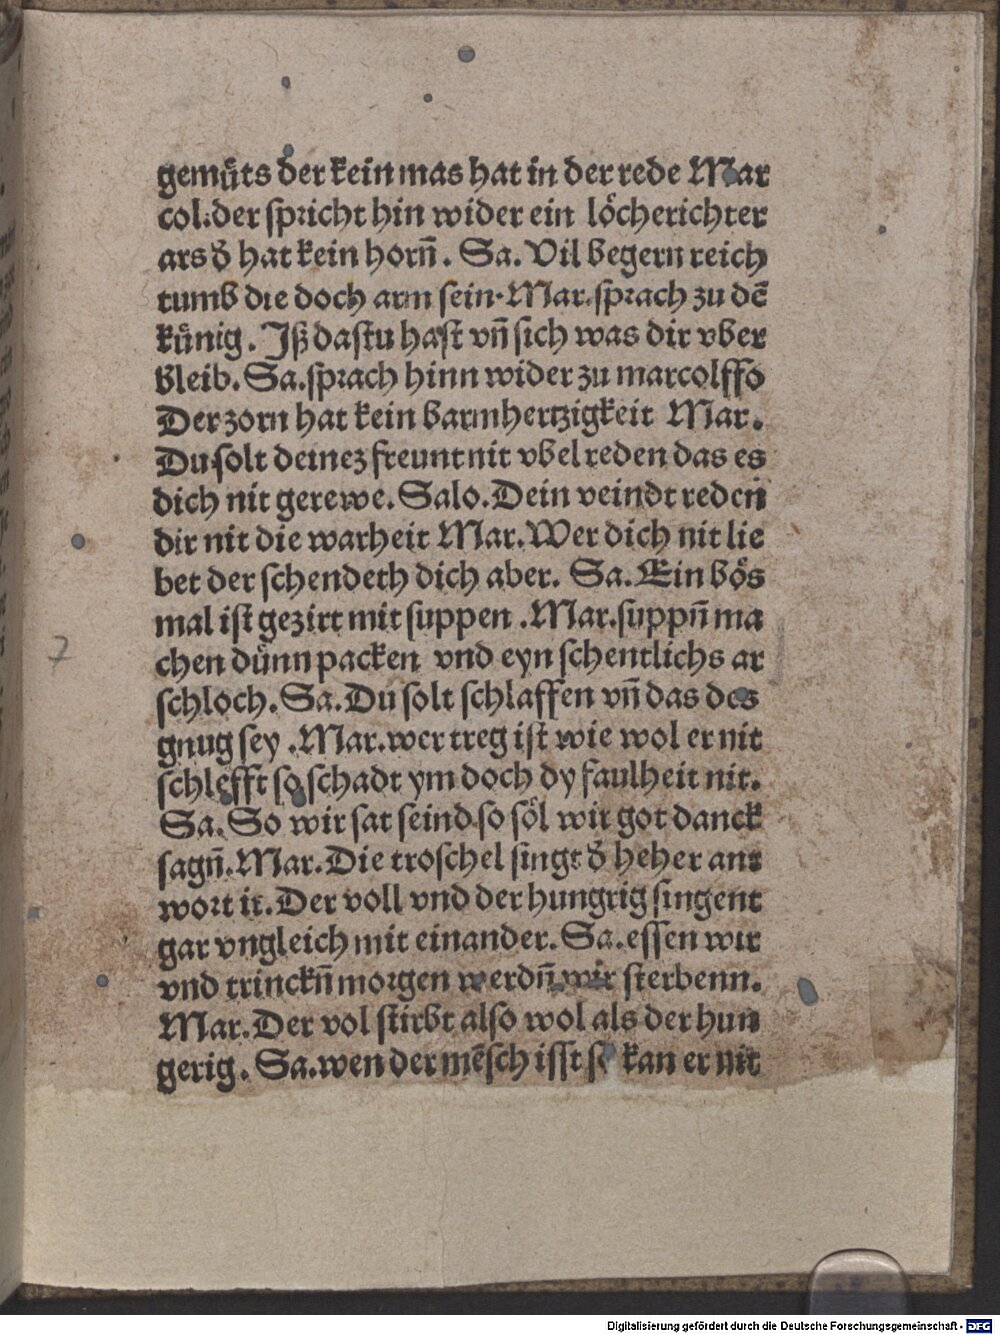 gemuͤts der kein mas hat in der rede Mar
col.der spricht hin wider ein loͤcherichter
ars d̕ hat kein horn̄. Sa. Vil begern reich
tumb die doch arm sein·Mar.sprach zu dē
kuͤnig. Iß dastu hast vn̄ sich was dir vber
bleib. Sa.sprach hinn wider zu marcolffo
Der zorn hat kein barmhertzigkeit Mar.
Du solt deinez freunt nit vbel reden das es
dich nit gerewe. Salo. Dein veindt reden
dir nit die warheit Mar. Wer dich nit lie
bet der schendeth dich aber. Sa. Ein boͤs
mal ist gezirt mit suppen .Mar.suppn̄ ma
chen duͤnn packen vnd eyn schentlichs ar
schloch. Sa. Du solt schlaffen vn̄ das des
gnug sey .Mar.wer treg ist wie wol er nit
schlefft so schadt ym doch dy faulheit nit.
Sa. So wir sat seind so soͤl wir got danck
sagn̄.Mar. Die troschel singt d̕ heher ant
wort ir. Der voll vnd der hungrig singent
gar vngleich mit einander. Sa.essen wir
vnd trinckn̄ morgen werdn̄ wir sterbenn.
Mar. Der vol stirbt also wol als der hun
gerig. Sa.wen der mēsch isst so kan er nit
7
Digitalisierung gefördert durch die Deutsche Forschungsgemeinschaft - DFG